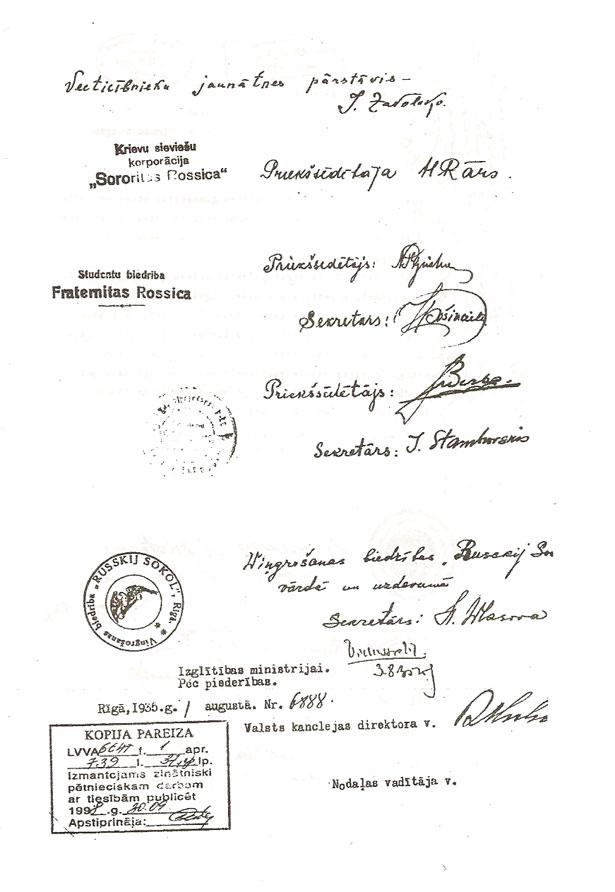 Vecticībnieku jaunātnes pārstāvis –
I. Zavoloko.
Krievu sieviešu
korporācija
„Sororitas Rossica"
Priekšsēdētāja H Rārs.
Studentu biedrība
Fraternitas Rossica
Priekšsēdētājs:
Sekretārs:
Priekšsēdētājs:
Sekretārs: I. Stamborskis
Vingrošanas biedrība „RUSSKIJ SOKOL", Rīgā.
Vingrošanas biedrības „Russkij So
vārdā un uzdevumā
Sekretārs:
Izglītības ministrijai.
Pēc piederības.
Rīgā, 1935.g. / augustā. Nr. 6888.
Valsts kanclejas direktora v.
Nodaļas vadītāja v.
KOPIJA PAREIZA
LVVA f. 1 apr.
739 l. lp.
Izmantojams zinātniski
pētnieciskam darbam
ar tiesībām publicēt
199 .g. 30.09
Apstiprināja: